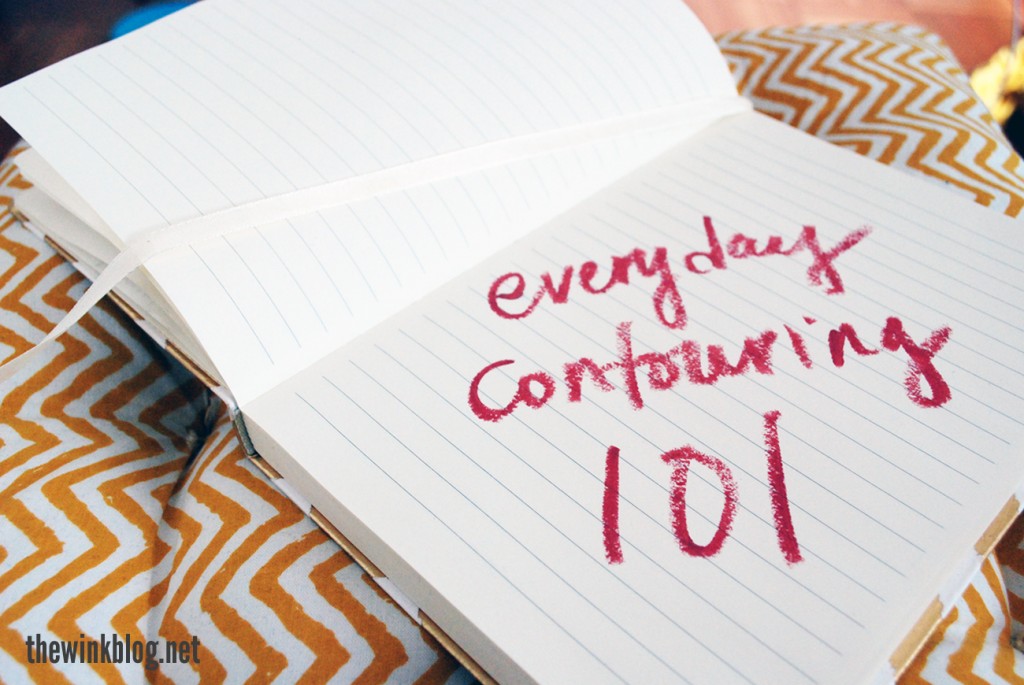 everyday
contouring
101
thewinkblog.net